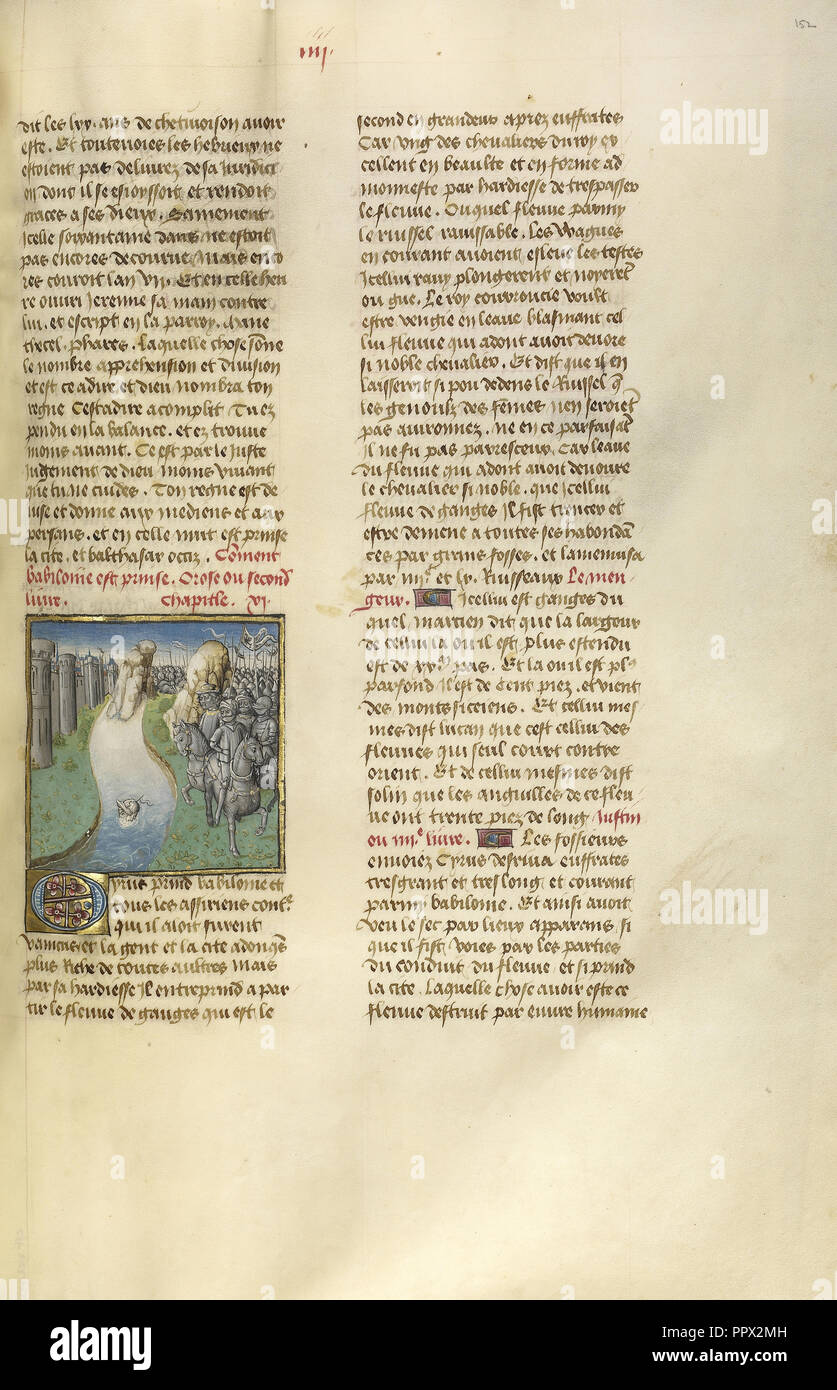 152
iiii.
dit les lxx. ans de chetivoison avoir
este. Et toutevoies les hebrieux ne
estoient pas delivrez de sa juridici
on dont il sesioyssoit et rendoit
graces a ses dieux. Sainement
Icelle soixantaine dans ne estoit
pas encores decourue, mais enco
res couroit lan vii. Et en celle heu
re ouvri Jeremie sa main contre
lui. et escript en la paroy. Mane
thecel. phares. Laquelle chose sone
le nombre apprehension et division
et est ce a dire et dieu nombra ton
regne Cestadire acomplit Tu ez
pendu en la balance. et ez trouve
moins avant. Ce est par le juste
jugement de dieu moins vivant
que tu ne cuides. Ton regne est de
vise et donne aux mediens et aux
persans. et en celle nuit est prinse
la cite. et balthasar occiz. Coment
babiloine est prinse. Orose ou second
livre. Chapitle. xi.
Cyrus prind babiloine et
tous les assiriens contre
qui il aloit furent
vaincus et la gent et la cite adonques
plus riche de toutes aultres Mais
par sa hardiesse Il entreprind a par
tir le fleuve de ganges qui est le
second en grandeur aprez euffrates
Car ung des chevaliers du roy ex
cellent en beaulte et en forme ad
monneste par hardiesse de trespasser
le fleuve. Ouquel fleuve parmy
le ruissel ravissable. Les wagues
en courant avoient esleve les testes
Icellui ravy plongerent et noyerent
ou gue. Le roy courroucie voult
estre vengie en leaue blasmant cel
lui fleuve qui adont avoit devore
si noble chevalier. Et dist que il en
laisseroit si pou dedens le Ruissel que
les genoulz des femes nen seroient
pas avironnez. ne en ce parfaisant
Il ne fu pas paresceux. Car leaue
du fleuve qui adont avoit devoure
le chevalier si noble. que Icellui
fleuve de ganges Il fist trencer et
estre demene a toutes ses habondan
ces par grans fosses. et lamenuisa
par iiiic et lx. Ruisseaux Le men
geur. Icellui est ganges du
quel marcien dit que la largeur
de cellui la ou il est plus estendu
est de xxm pas. Et la ou il est plus
parfond Il est de Cent piez. et vient
des monts siceiens. Et cellui mes
mes dist lucan que cest cellui des
fleuves qui seul court contre
orient. Et de cellui mesmes dist
solin que les anguilles de ce fleu
ve ont trente piez de long Justin
ou iiiie livre. Les fossieurs
envoiez Cyrus desriva euffrates
tresgrant et treslong et courant
parmy babiloine. Et ainsi avoit
veu le sec par lieux apparans. si
que il fist voies par les parties
du conduit du fleuve et si prind
la cite. Laquelle chose avoir este ce
fleuve destruit par euvre humaine
alamy
Image ID: PPX2MH
www.alamy.com